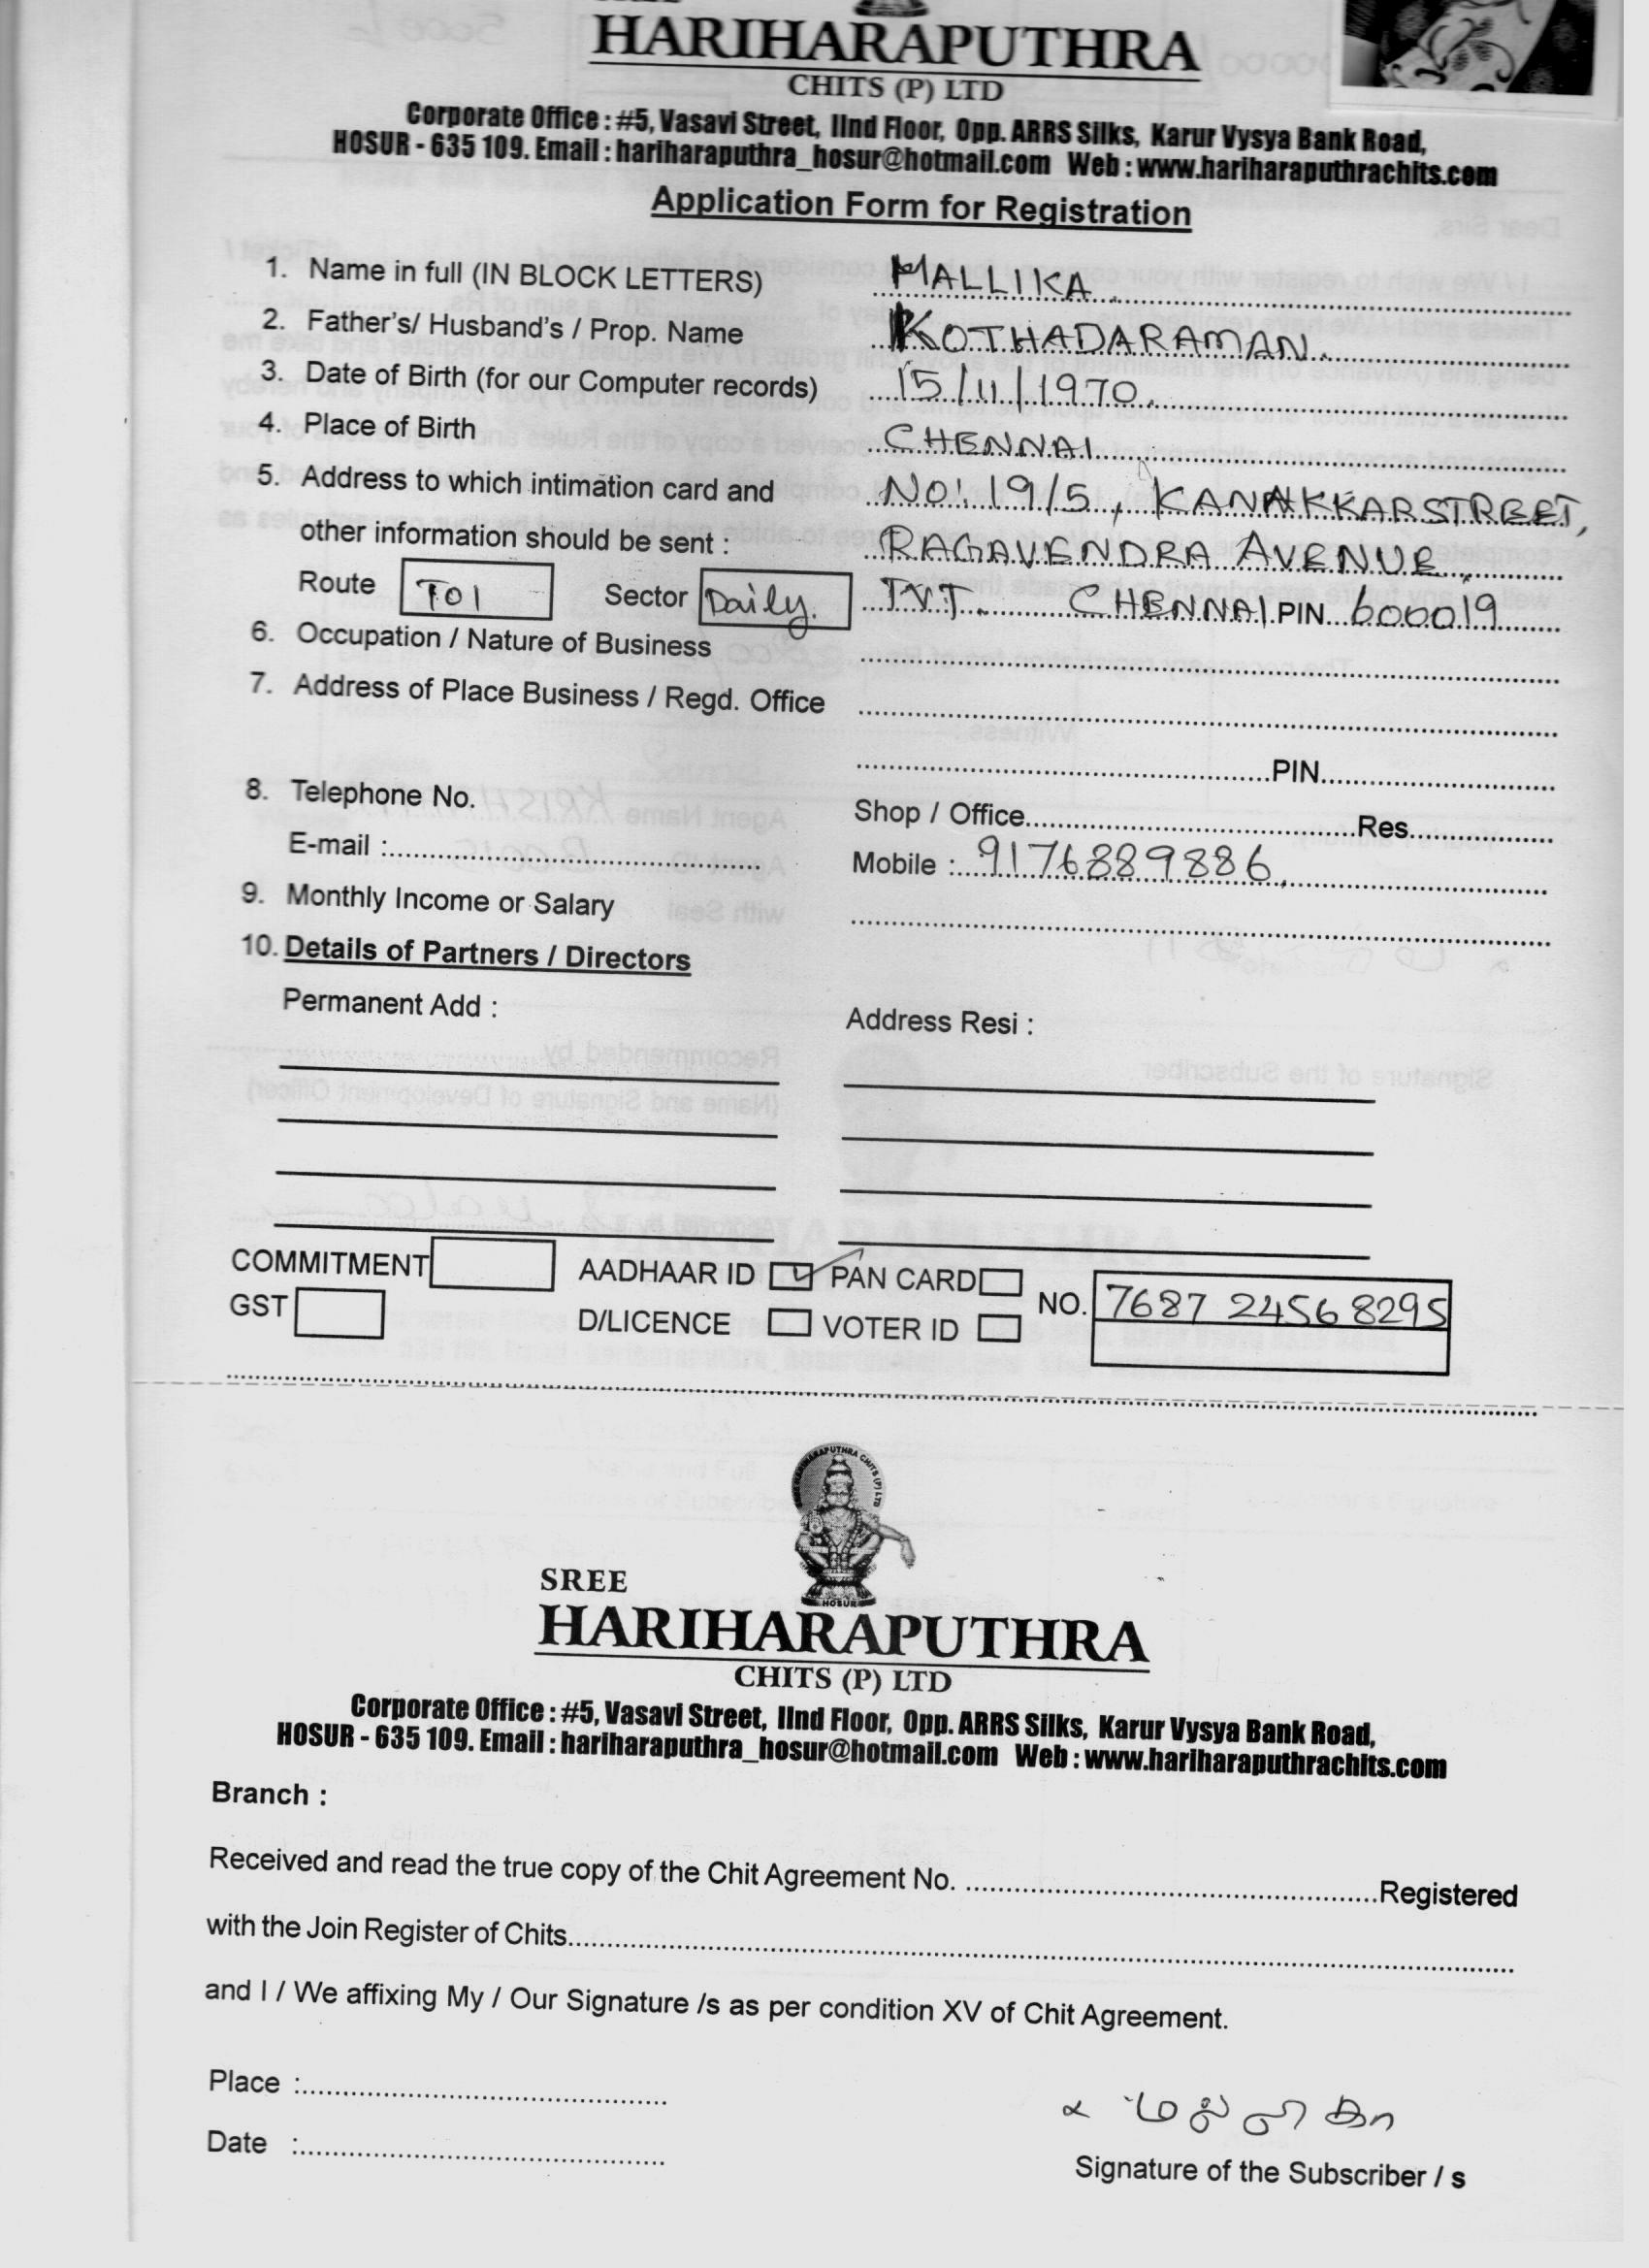 HARIHARAPUTHRA
CHITS (P) LTD
Corporate Office : #5, Vasavi Street, IInd Floor, Opp. ARRS Silks, Karur Vysya Bank Road,
HOSUR - 635 109. Email : hariharaputhra_hosur@hotmail.com Web : www.hariharaputhrachits.com
Application Form for Registration
1. Name in full (IN BLOCK LETTERS) MALLIKA.
2. Father's/ Husband's / Prop. Name KOTHADARAMAN.
3. Date of Birth (for our Computer records) 15/11/1970.
4. Place of Birth CHENNAI
5. Address to which intimation card and NO: 19/5, KANAKKAR STREET,
other information should be sent : RAGAVENDRA AVENUE,
Route T01 Sector Daily. T.V.T. CHENNAI PIN 600019
6. Occupation / Nature of Business
7. Address of Place Business / Regd. Office
PIN
8. Telephone No. Shop / Office Res
E-mail : Mobile : 9176889886,
9. Monthly Income or Salary
10. Details of Partners / Directors
Permanent Add : Address Resi :
COMMITMENT AADHAAR ID ✓ PAN CARD NO. 7687 2456 8295
GST D/LICENCE VOTER ID
SREE
HARIHARAPUTHRA
CHITS (P) LTD
Corporate Office : #5, Vasavi Street, IInd Floor, Opp. ARRS Silks, Karur Vysya Bank Road,
HOSUR - 635 109. Email : hariharaputhra_hosur@hotmail.com Web : www.hariharaputhrachits.com
Branch :
Received and read the true copy of the Chit Agreement No. Registered
with the Join Register of Chits
and I / We affixing My / Our Signature /s as per condition XV of Chit Agreement.
Place :
Date :
மல்லிகா
Signature of the Subscriber / s